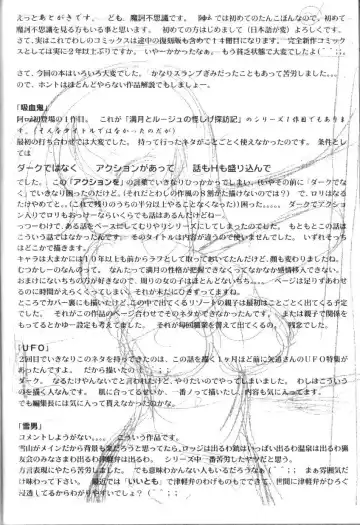 えっとあとがきです。 ども、魔訶不思議です。 阿吽では初めてのたんこぼんなので、初めて
魔訶不思議を見る方もいる事と思います。 初めての方はじめまして（日本語が変）よろしくです。
さて、実はこれでわしのコミックスは途中の復刻版も含めて14冊目になります。 完全新作コミック
スとしては実に2年以上ぶりですか。 いやーかかったなぁ。 もう貧乏状態で大変でしたよ(´；；
さて、今回の本はいろいろ大変でした。 かなりスランプぎみだったこともあって苦労しました。。。
ので、ホントはほとんどやらない作品解説でもしましょー。
「吸血鬼」
阿吽初登場の1作目。 これが「満月とルージュの怪しげ探訪記」のシリーズ1作目でもあります。
（そんなタイトルではなかったのだが）
最初の打ち合わせでは大変でした。 持って行ったネタがことごとく使えなかったのです。 条件とし
ては
ダークではなく アクションがあって 話もHも盛り込んで
でした。 この「アクションを」の言葉でいきなりひっかかってしまい。(いやその前に「ダークでな
く」でいきなり困ったのだけど。それだとわしの作風の8割がた描けないのでは？)で、ロリはなる
たけやめてと。。(これで残りのうちの半分以上やることなくなった))困った。。。。。 ダークでアクシ
ョン入りでロリもおっけーならいくらでも話はあるんだけどねー。
っつーわけで、ある話をベースにしてむりやりシリーズにしてしまったのでした。 もともとこの話は
こういう話ではなかったんです。 そのタイトルは内容が違うので使いませんでした。 いずれそっち
はどこかで描きます。
キャラは大まかには10年以上も前からラフとして取っておいてたんだけど、顔も変わりましたね。
むつかしーのなんのって。 なんたって満月の性格が把握できなくってなかなか感情移入できない。
おまけにないちちの方が好きなので、周りの女の子はほとんどないちち。。。 ページは足りずあわせ
るのに時間がえらくくってしまい。それがまただにひきずってますね。
ところでカバー裏にも描いたけど、この中で出てくるリゾートの親子は最初はことごとく出てくる予定
でした。 それがこの作品のページ合わせでそのネタができなかったんです。 または親子で関係を
もってるとかゆー設定も考えてました。 それが毎回職業を替えて出てくるの。。 残念でした。
「UFO」
2回目でいきなりこのネタを持ってきたのは、この話を描く1ヶ月ほど前に矢追さんのUFO特集が
あったんですよ。 だから描いたの(´；；
ダーク。 なるたけやんないでと言われたけど、やりたいのでやってしまいました。 わしはこういう
のを描く人なんです。 肌に合ってるせいか、一番ノって描いたし、内容も気に入ってます。
でも編集長には気に入って貰えなかったのかな？
「雪男」
コメントしようがない。。。。 こういう作品です。
雪山がメインだから背景も楽だろうと思ってたら、ロッジは出るわ鎖はいっぱい出るわ温泉は出るわ猟
友会のみなさまは出るわ津軽弁は出るわ。 シリーズ中一番苦労したヤツだと思う。
方言表現にやたら苦労しました。 でも意味わかんない人もいるだろうなぁ(´；； まぁ雰囲気だ
け味わって下さい。 最近では「いいとも」で津軽弁がわけのものでできて、世間に津軽弁がひろく
浸透してるからわがりやすいでしょ？(´；；